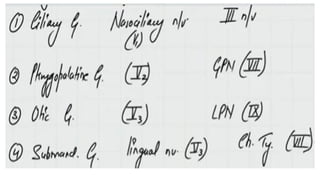 ① Ciliary G. Nasociliary n/v (V₁) III n/v
② Pterygopalatine G. (V₂) GPN (VII)
③ Otic G. (V₃) LPN (IX)
④ Submand. G. lingual nv. (V₃) Ch. Ty. (VII)